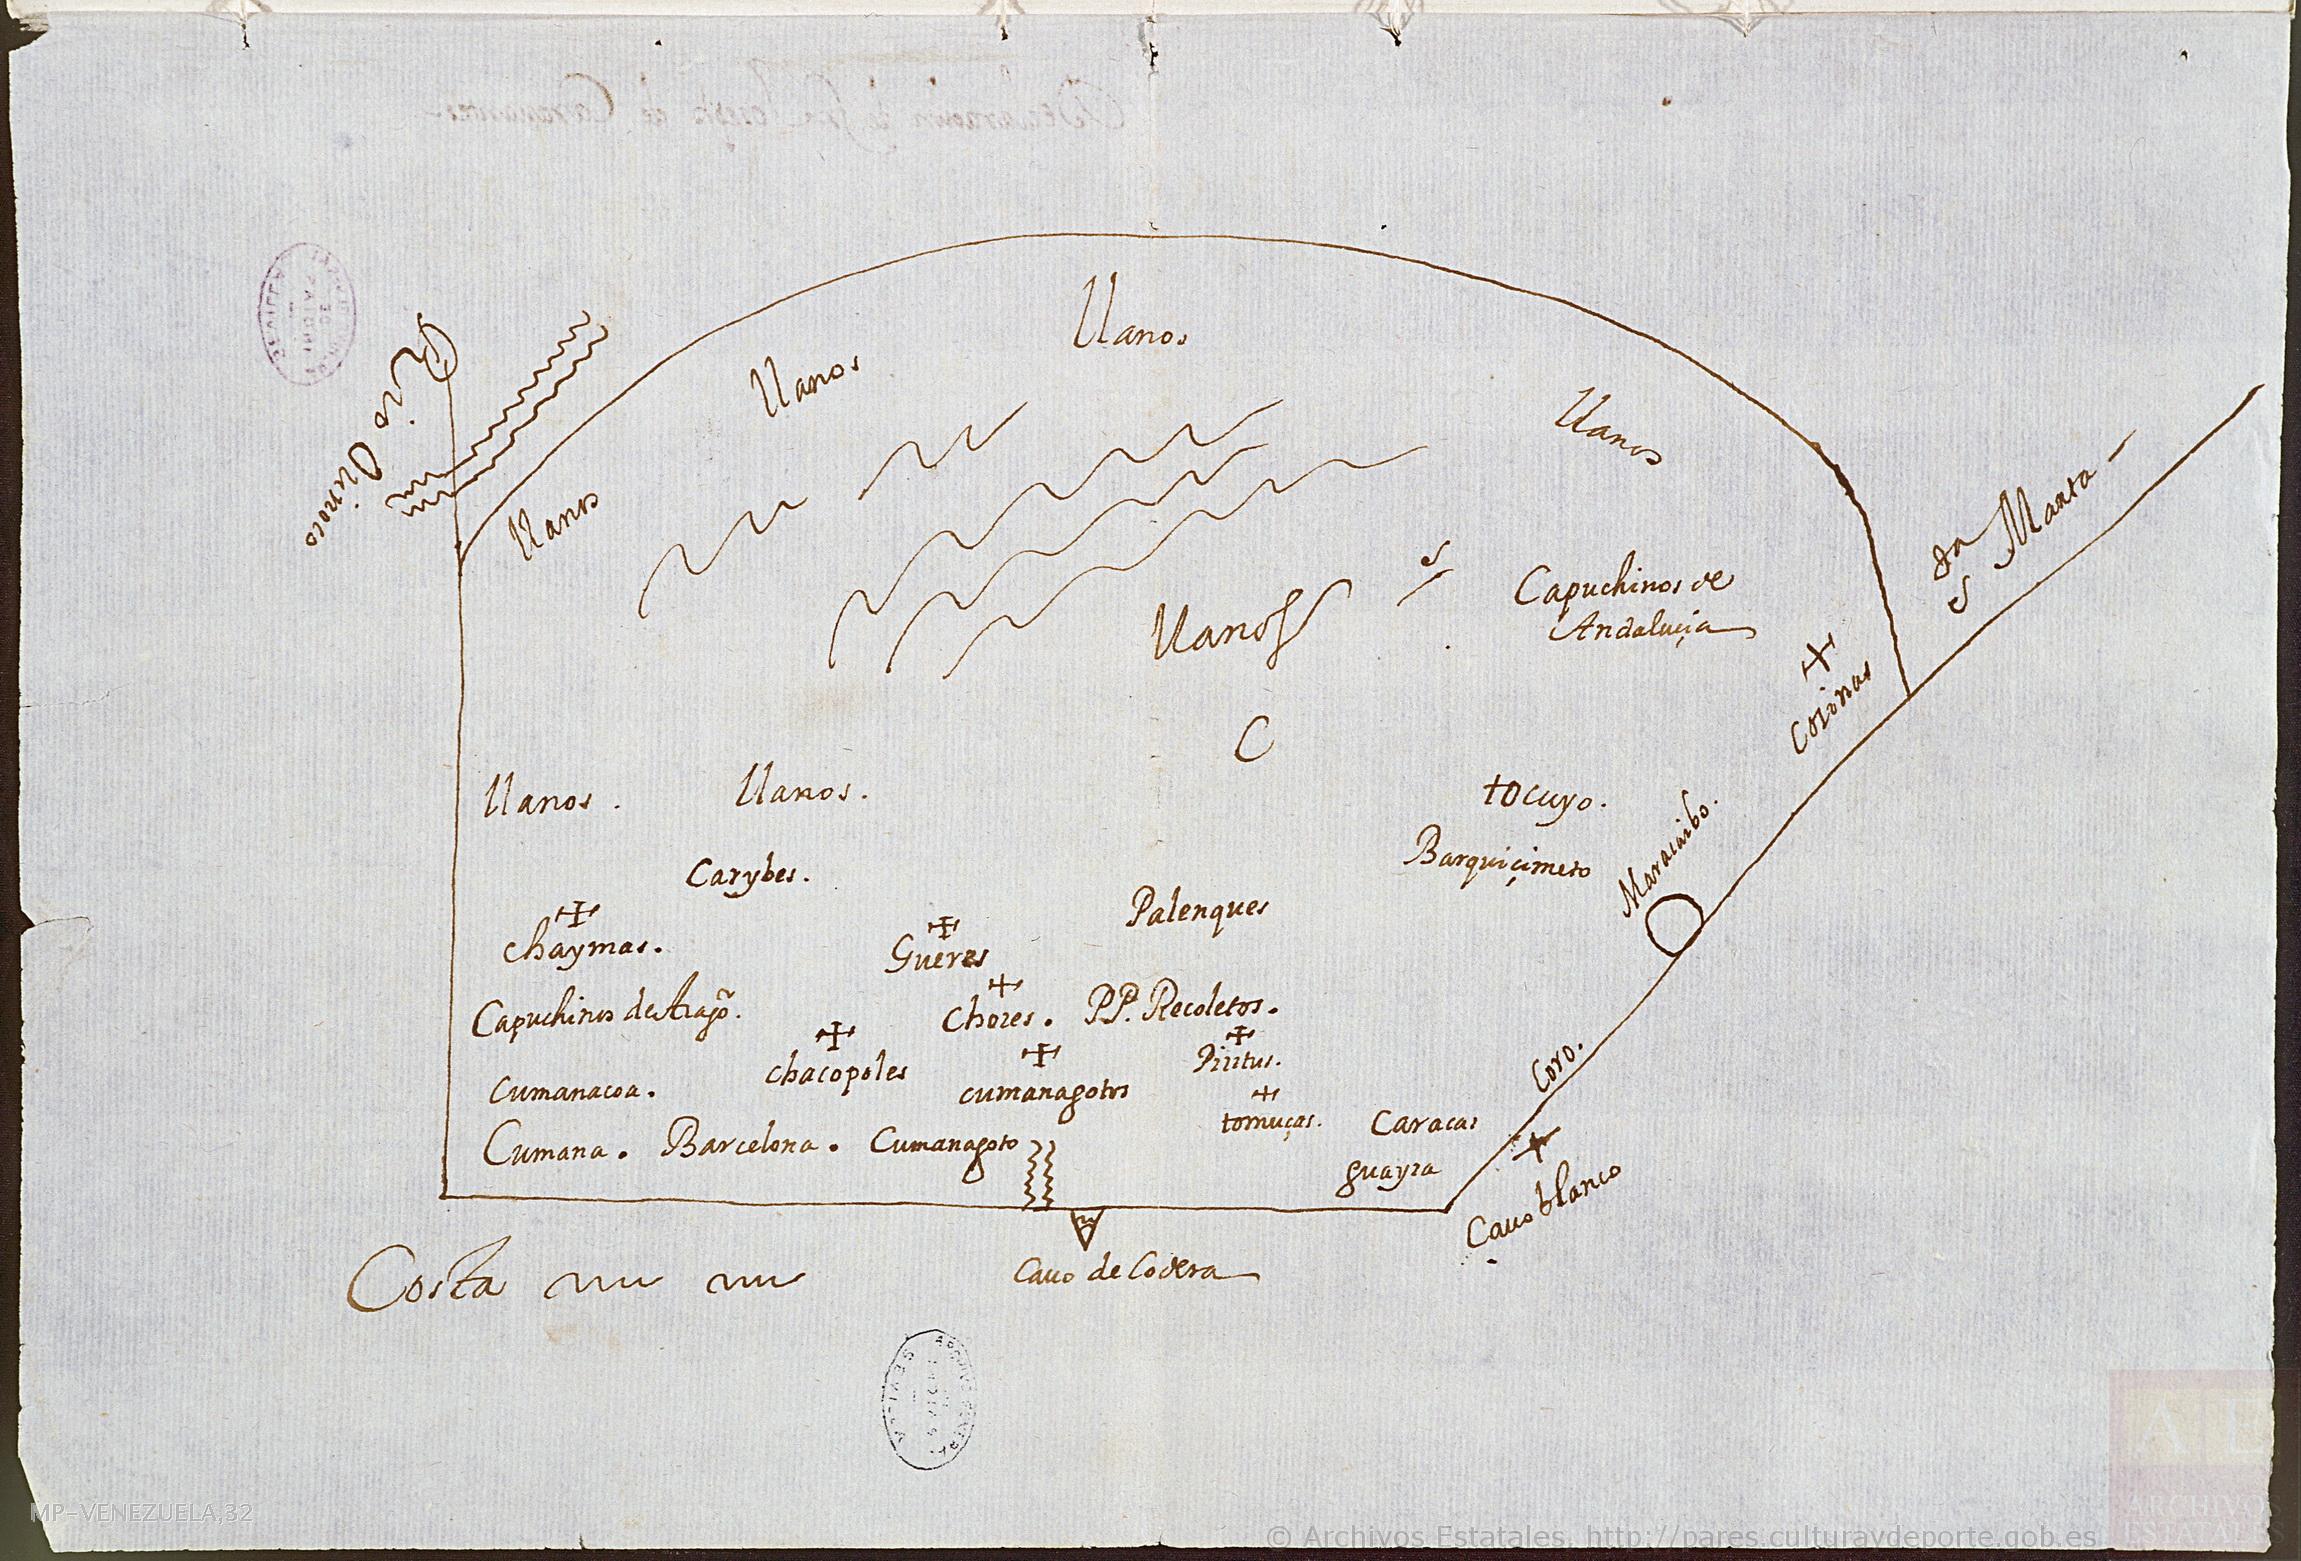 Llanos
Llanos
Llanos
Rio Orinoco
Llanos
Sta Marta
Capuchinos de
Andaluçia
Llanos
Cocinas
C
Llanos.
Llanos.
tocuyo.
Maracaibo.
Barquiçimeto
Carybes.
Palenques
Chaymas.
Gueres
Capuchinos de Aragõ.
Chores.
PP. Recoletos.
Piritus.
Coro.
chacopoles
Cumanacoa.
cumanagotos
tomuças.
Caracas
Cumana.
Barcelona.
Cumanagoto
guayra
Cauo blanco
Costa
Cauo de Codera
MP-VENEZUELA,32
AE
ARCHIVOS
ESTATALES
© Archivos Estatales, http://pares.culturaydeporte.gob.es